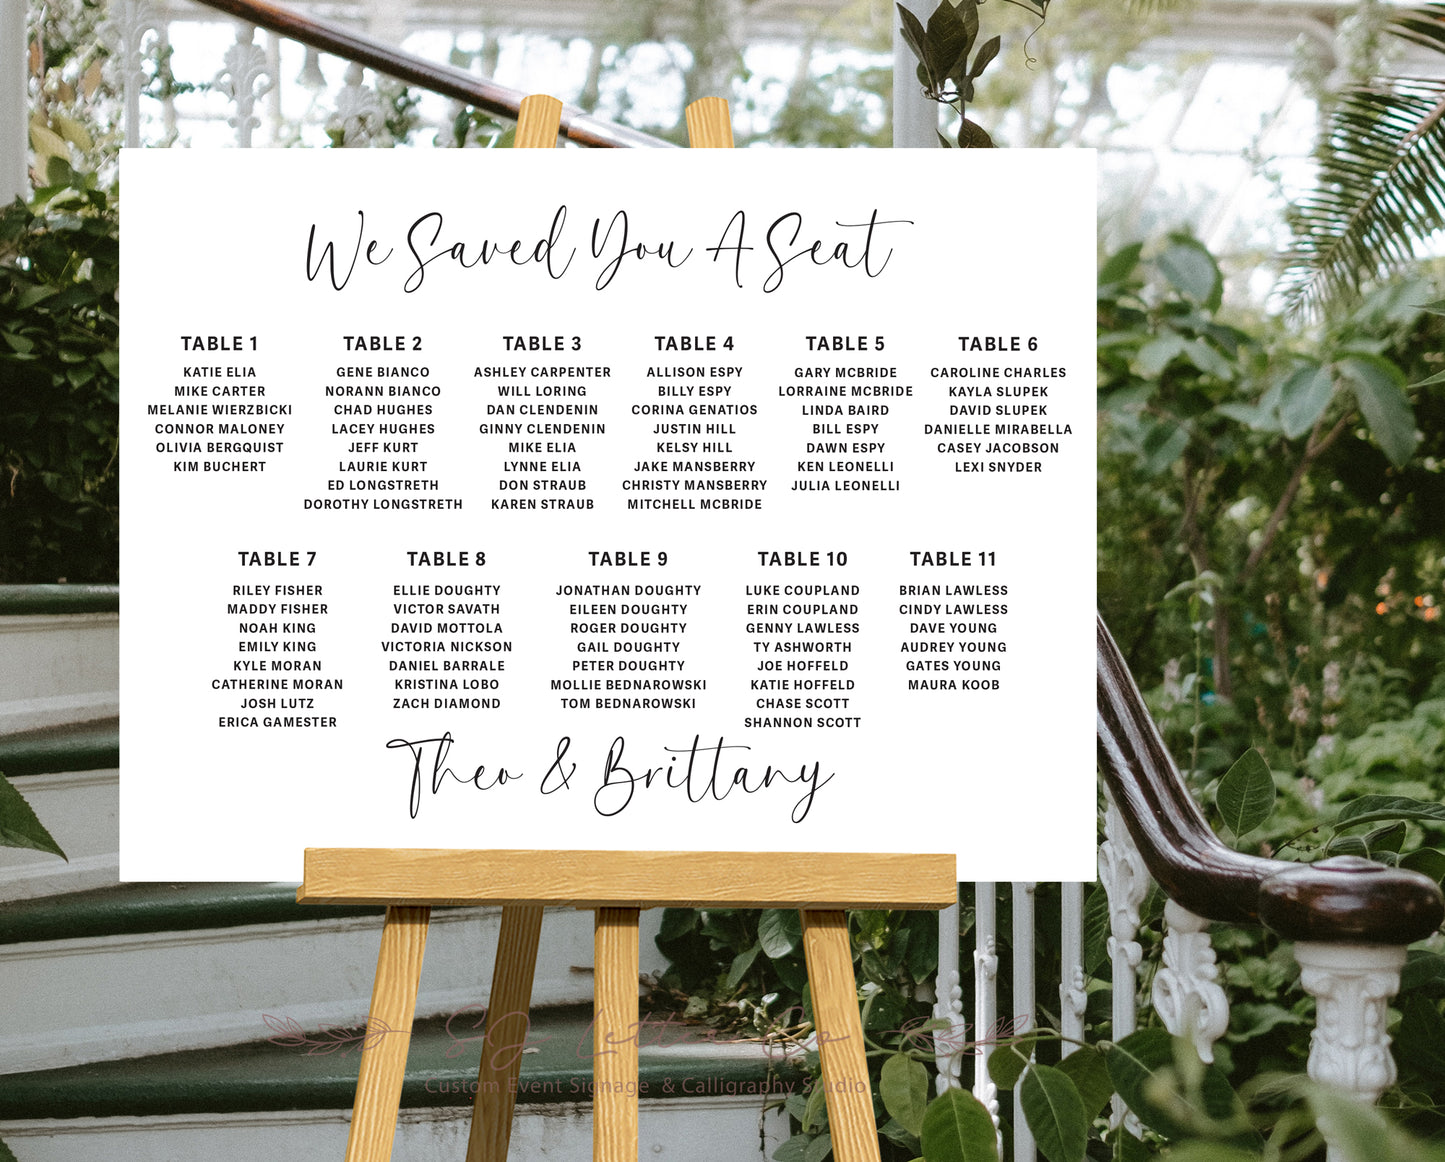 We Saved You A Seat
TABLE 1
KATIE ELIA
MIKE CARTER
MELANIE WIERZBICKI
CONNOR MALONEY
OLIVIA BERGQUIST
KIM BUCHERT
TABLE 2
GENE BIANCO
NORANN BIANCO
CHAD HUGHES
LACEY HUGHES
JEFF KURT
LAURIE KURT
ED LONGSTRETH
DOROTHY LONGSTRETH
TABLE 3
ASHLEY CARPENTER
WILL LORING
DAN CLENDENIN
GINNY CLENDENIN
MIKE ELIA
LYNNE ELIA
DON STRAUB
KAREN STRAUB
TABLE 4
ALLISON ESPY
BILLY ESPY
CORINA GENATIOS
JUSTIN HILL
KELSY HILL
JAKE MANSBERRY
CHRISTY MANSBERRY
MITCHELL MCBRIDE
TABLE 5
GARY MCBRIDE
LORRAINE MCBRIDE
LINDA BAIRD
BILL ESPY
DAWN ESPY
KEN LEONELLI
JULIA LEONELLI
TABLE 6
CAROLINE CHARLES
KAYLA SLUPEK
DAVID SLUPEK
DANIELLE MIRABELLA
CASEY JACOBSON
LEXI SNYDER
TABLE 7
RILEY FISHER
MADDY FISHER
NOAH KING
EMILY KING
KYLE MORAN
CATHERINE MORAN
JOSH LUTZ
ERICA GAMESTER
TABLE 8
ELLIE DOUGHTY
VICTOR SAVATH
DAVID MOTTOLA
VICTORIA NICKSON
DANIEL BARRALE
KRISTINA LOBO
ZACH DIAMOND
TABLE 9
JONATHAN DOUGHTY
EILEEN DOUGHTY
ROGER DOUGHTY
GAIL DOUGHTY
PETER DOUGHTY
MOLLIE BEDNAROWSKI
TOM BEDNAROWSKI
TABLE 10
LUKE COUPLAND
ERIN COUPLAND
GENNY LAWLESS
TY ASHWORTH
JOE HOFFELD
KATIE HOFFELD
CHASE SCOTT
SHANNON SCOTT
TABLE 11
BRIAN LAWLESS
CINDY LAWLESS
DAVE YOUNG
AUDREY YOUNG
GATES YOUNG
MAURA KOOB
Theo & Brittany
Custom Event Signage & Calligraphy Studio